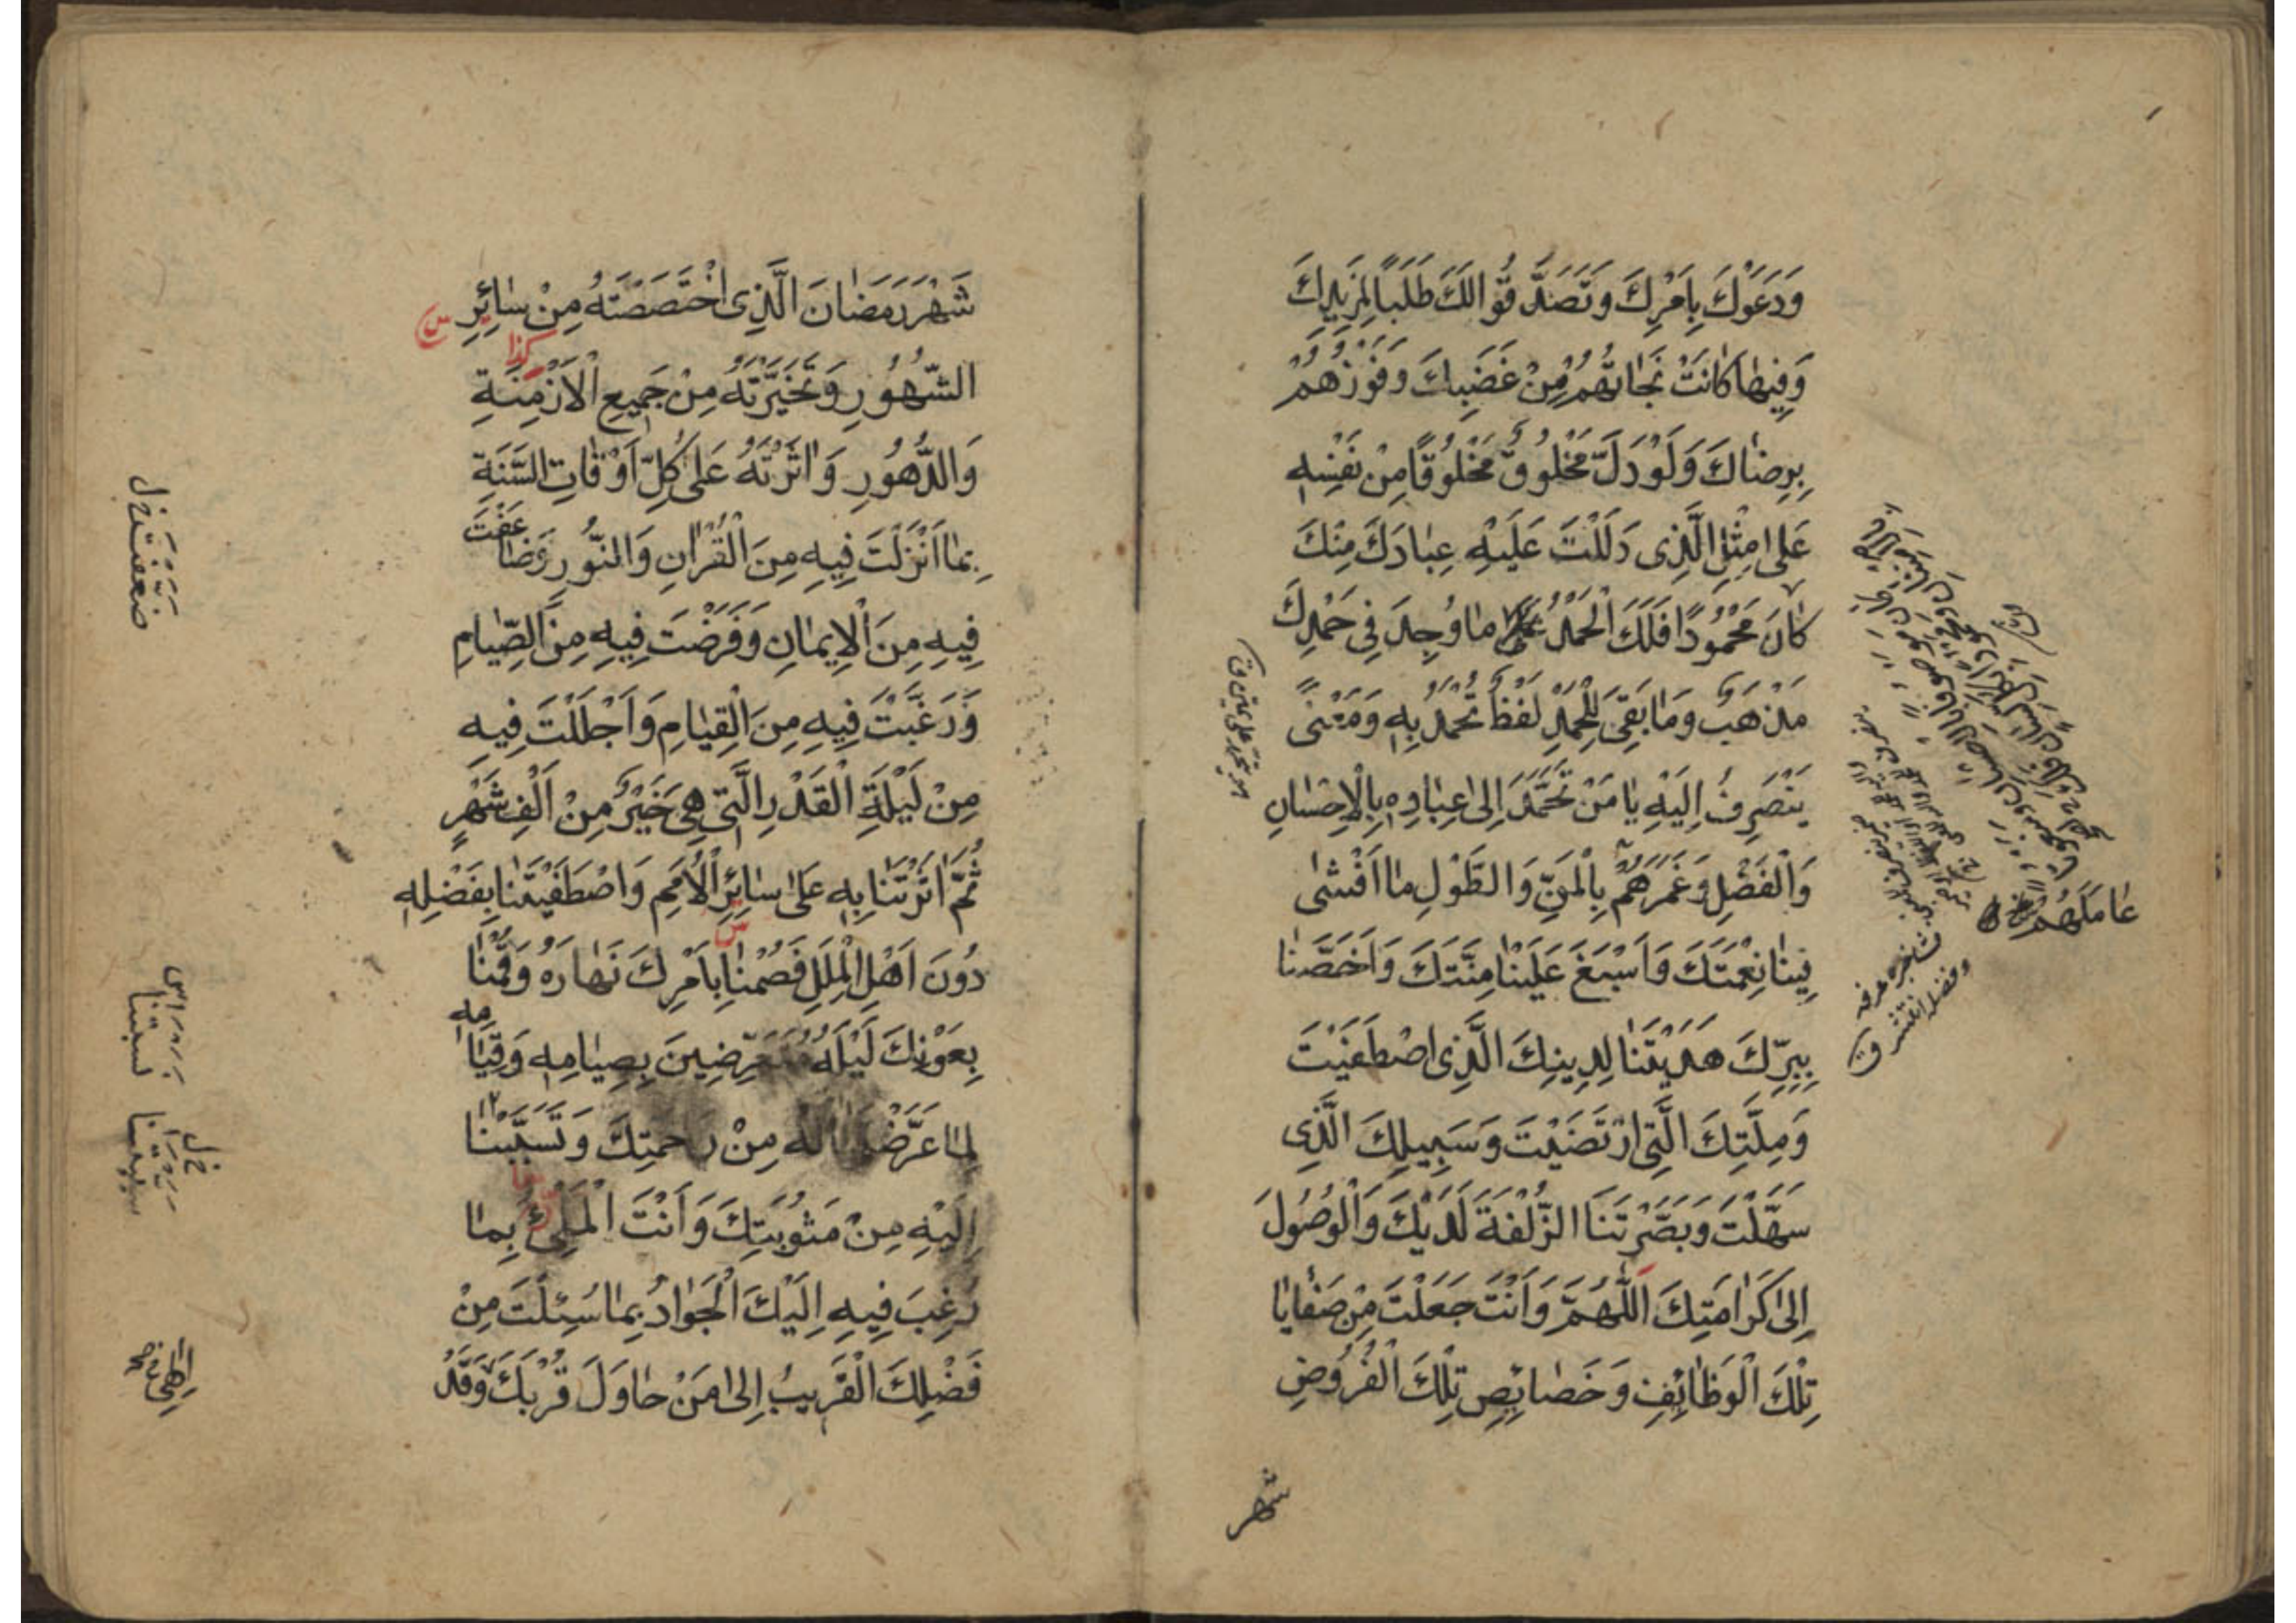 وَدَعَوْكَ بِاَمْرِكَ وَتَصَدَّقُوا لَكَ طَلَبًا لِمَزِيدِكَ
وَفِيهَا كَانَتْ نَجَاتُهُمْ مِنْ غَضَبِكَ وَفَوْزُهُمْ
بِرِضَاكَ وَلَوْ دَلَّ مَخْلُوقٌ مَخْلُوقًا مِنْ نَفْسِهِ
عَلىٰ مِثْلِ الَّذِى دَلَلْتَ عَلَيْهِ عِبَادَكَ مِنْكَ
كَانَ مَحْمُودًا فَلَكَ الْحَمْدُ مَا وُجِدَ فِى حَمْدِكَ
مَذْهَبٌ وَمَا بَقِىَ لِلْحَمْدِ لَفْظٌ تُحْمَدُ بِهِ وَمَعْنًى
يَنْصَرِفُ اِلَيْهِ يَا مَنْ تَحَمَّدَ اِلىٰ عِبَادِهِ بِالْاِحْسَانِ
وَالْفَضْلِ وَغَمَرَهُمْ بِالْمَنِّ وَالطَّوْلِ مَا اَفْشىٰ
فِينَا نِعْمَتَكَ وَاَسْبَغَ عَلَيْنَا مِنَّتَكَ وَاَخَصَّنَا
بِبِرِّكَ هَدَيْتَنَا لِدِينِكَ الَّذِى اصْطَفَيْتَ
وَمِلَّتِكَ الَّتِى ارْتَضَيْتَ وَسَبِيلِكَ الَّذِى
سَهَّلْتَ وَبَصَّرْتَنَا الزُّلْفَةَ لَدَيْكَ وَالْوُصُولَ
اِلىٰ كَرَامَتِكَ اَللّٰهُمَّ وَاَنْتَ جَعَلْتَ مِنْ صَفَايَا
تِلْكَ الْوَظَائِفِ وَخَصَائِصِ تِلْكَ الْفُرُوضِ
شهر
عَامَلَهُمْ
شَهْرَ رَمَضَانَ الَّذِى اخْتَصَصْتَهُ مِنْ سَائِرِ
كذا
الشُّهُورِ وَتَخَيَّرْتَهُ مِنْ جَمِيعِ الْاَزْمِنَةِ
وَالدُّهُورِ وَاٰثَرْتَهُ عَلىٰ كُلِّ اَوْقَاتِ السَّنَةِ
بِمَا اَنْزَلْتَ فِيهِ مِنَ الْقُرْاٰنِ وَالنُّورِ وَضَاعَفْتَ
فِيهِ مِنَ الْاِيمَانِ وَفَرَضْتَ فِيهِ مِنَ الصِّيَامِ
وَرَغَّبْتَ فِيهِ مِنَ الْقِيَامِ وَاَجْلَلْتَ فِيهِ
مِنْ لَيْلَةِ الْقَدْرِ الَّتِى هِىَ خَيْرٌ مِنْ اَلْفِ شَهْرٍ
ثُمَّ اٰثَرْتَنَا بِهِ عَلىٰ سَائِرِ الْاُمَمِ وَاصْطَفَيْتَنَا بِفَضْلِهِ
دُونَ اَهْلِ الْمِلَلِ فَصُمْنَا بِاَمْرِكَ نَهَارَهُ وَقُمْنَا
بِعَوْنِكَ لَيْلَهُ مُتَعَرِّضِينَ بِصِيَامِهِ وَقِيَامِهِ
لِمَا عَرَّضْتَنَا لَهُ مِنْ رَحْمَتِكَ وَتَسَبَّبْنَا
اِلَيْهِ مِنْ مَثُوبَتِكَ وَاَنْتَ الْمَلِىءُ بِمَا
رُغِبَ فِيهِ اِلَيْكَ الْجَوَادُ بِمَا سُئِلْتَ مِنْ
فَضْلِكَ الْقَرِيبُ اِلىٰ مَنْ حَاوَلَ قُرْبَكَ وَقَدْ
ضَعَّفْتَ